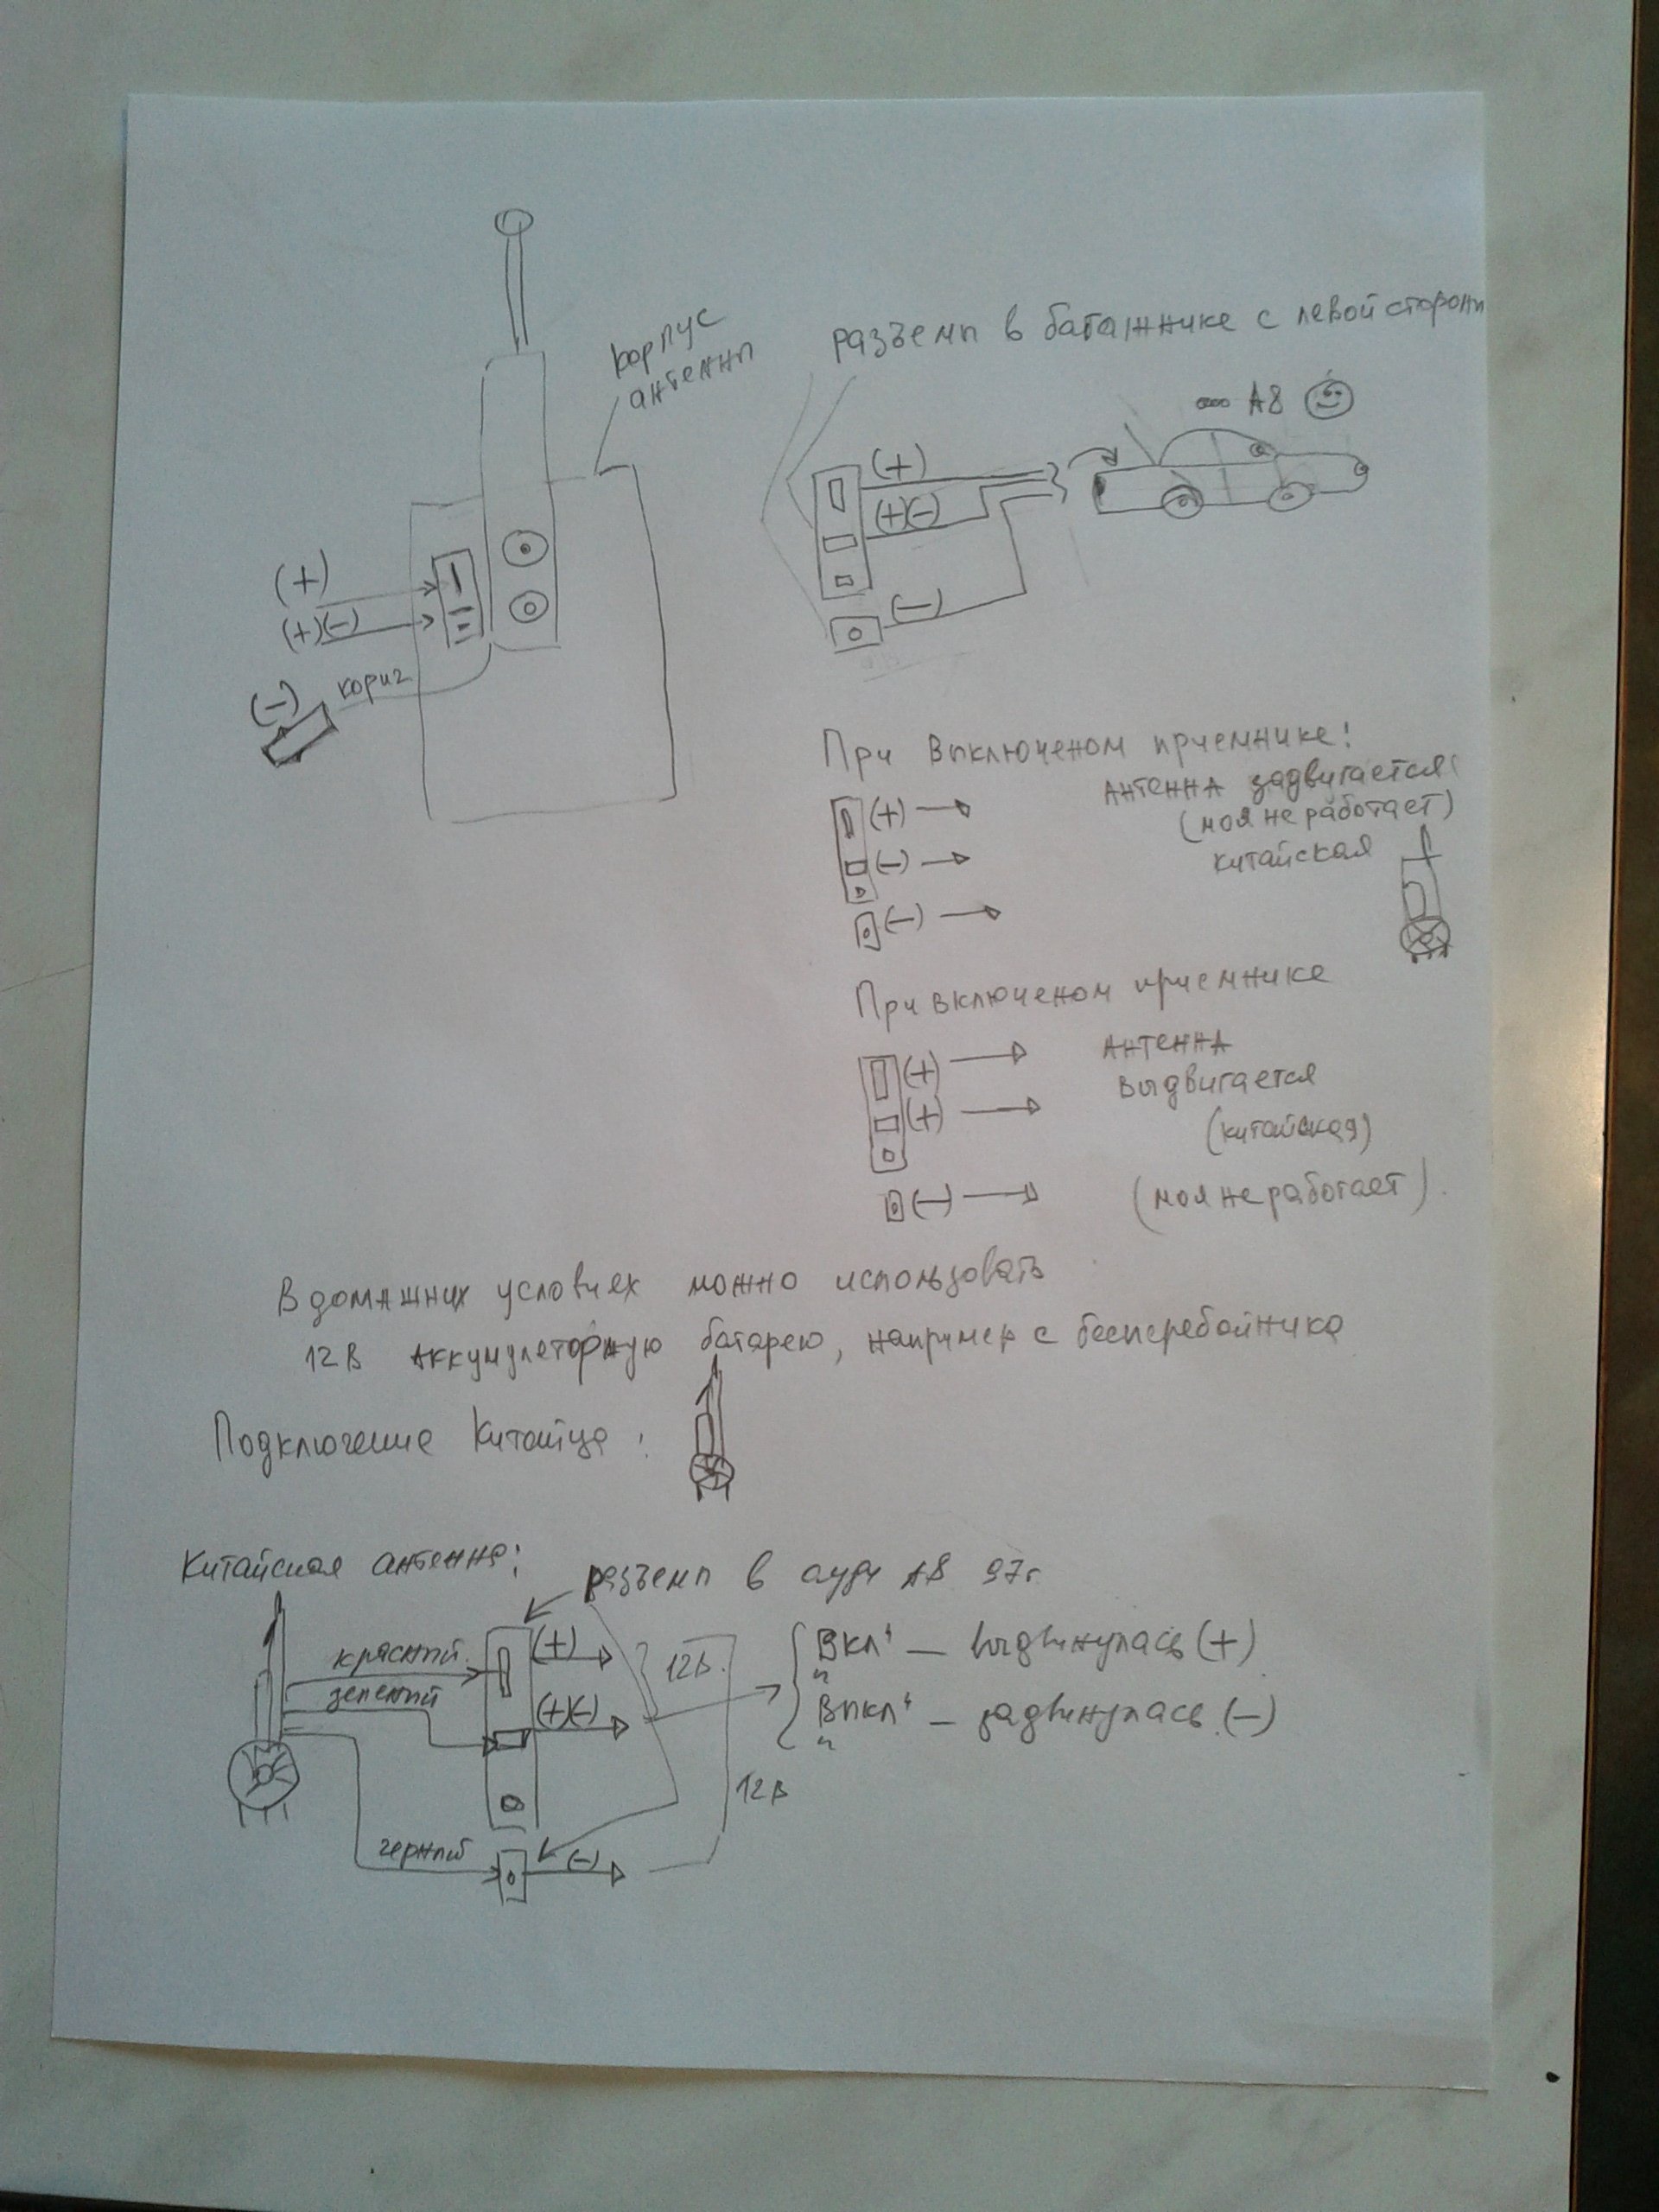 корпус
антенны
(+)
(+)(−)
(−)
кориг
разъемы в багажнике с левой стороны
A8
(+)
(+)(−)
(−)
При выключеном приемнике!
Антенна задвигается!
(моя не работает)
китайская
(+)
(−)
(−)
При включеном приемнике
Антенна
выдвигается
(китайская)
(моя не работает)
(+)
(+)
(−)
В домашних условиях можно использовать
12В аккумуляторную батарею, например с бесперебойника
Подключение Китайца:
Китайская антенна:
разъемы в ауди А8 97г.
красный
зеленый
черный
(+)
(+)(−)
(−)
12В
12В
"Вкл" — выдвинулась (+)
"Выкл" — задвинулась (−)